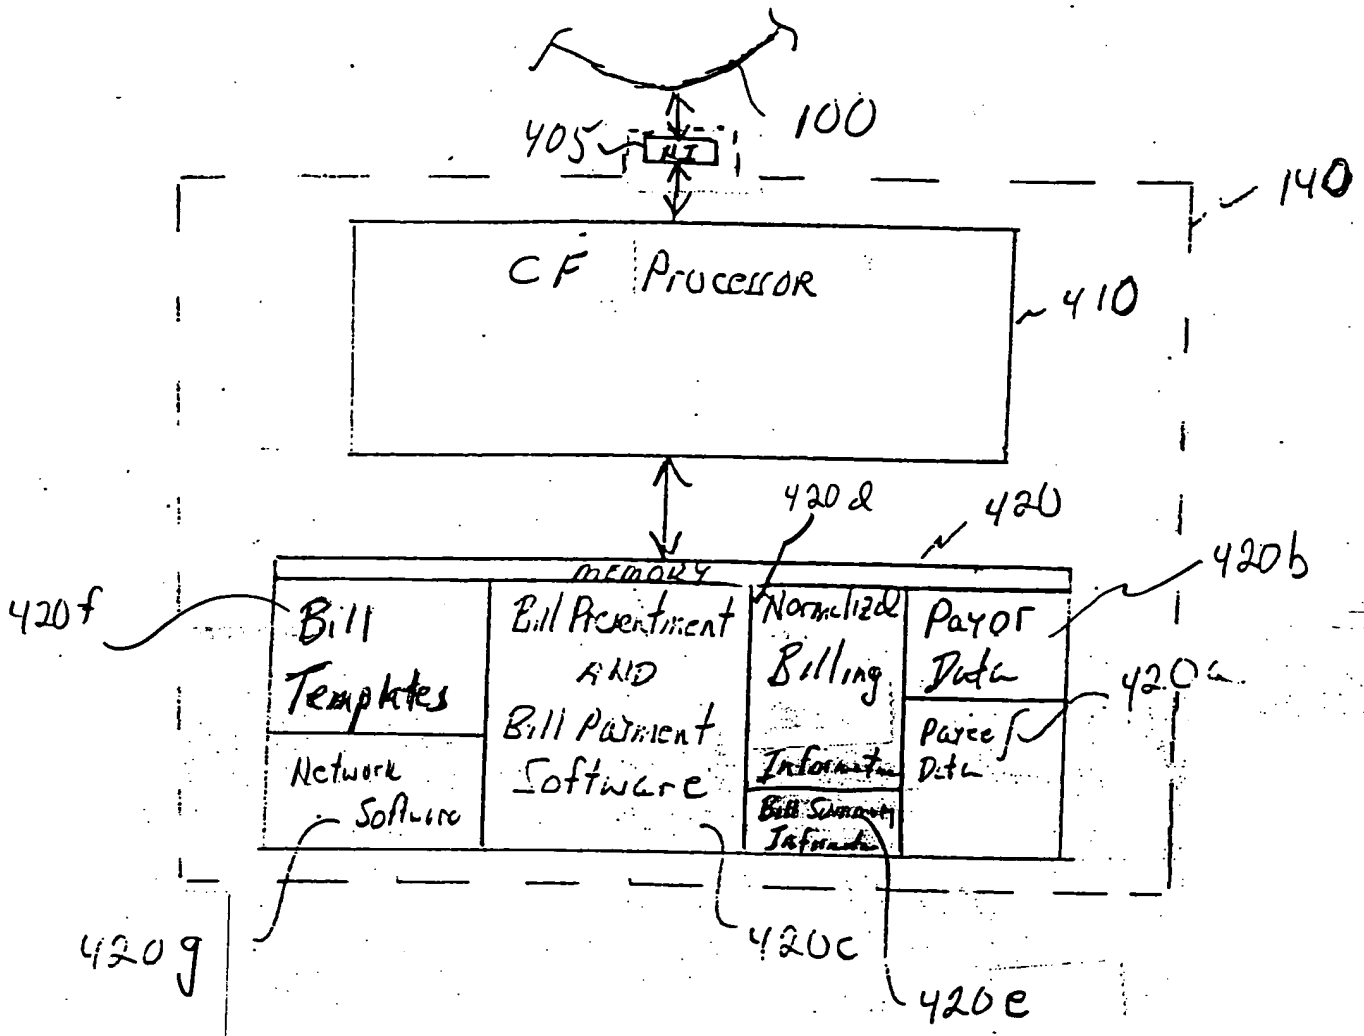 100
405
NI
140
CF Processor
410
420d
420
MEMORY
420b
420f
Bill
Templates
Bill Presentment
AND
Bill Payment
Software
Normalized
Billing
Payor
Data
420a
Payee
Data
Network
Software
Bill Summary
420g
420c
420e